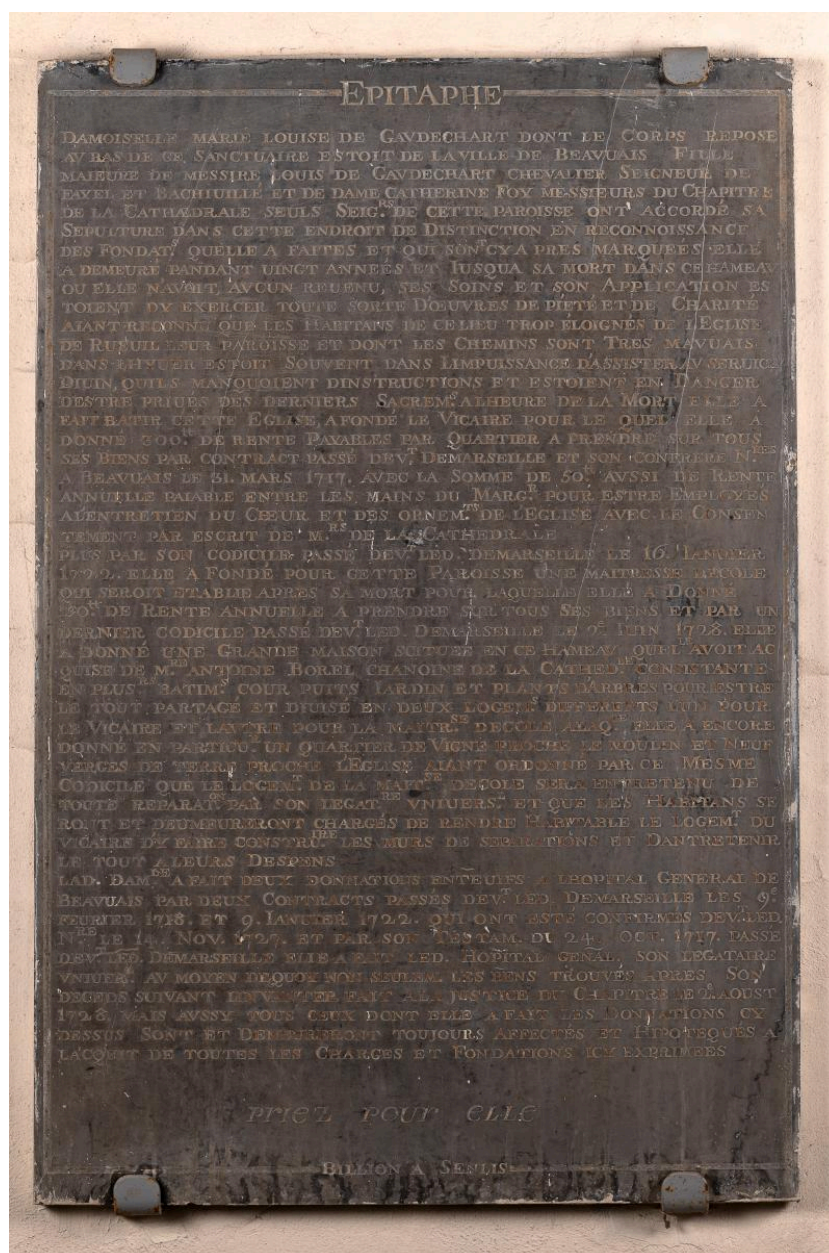 EPITAPHE
DAMOISELLE MARIE LOUISE DE GAVDECHART DONT LE CORPS REPOSE
AV BAS DE CE SANCTUAIRE ESTOIT DE LA VILLE DE BEAVUAIS FILLE
MAIEURE DE MESSIRE LOUIS DE GAVDECHART CHEVALIER SEIGNEUR DE
FAYEL ET BACHIUILLE ET DE DAME CATHERINE FOY MESSIEURS DU CHAPITRE
DE LA CATHADRALE SEULS SEIG.RS DE CETTE PAROISSE ONT ACCORDÉ SA
SEPULTURE DANS CETTE ENDROIT DE DISTINCTION EN RECONNOISSANCE
DES FONDAT.S QUELLE A FAITES ET QUI SONT CY APRES MARQUÉES ELLE
A DEMEURÉ PANDANT UINCT ANNÉES ET IUSQUA SA MORT DANS CE HAMEAV
OU ELLE NAVOIT AVCUN REUENU, SES SOINS ET SON APPLICATION ES
TOIENT DY EXERCER TOUTE SORTE DŒUVRES DE PIÉTÉ ET DE CHARITÉ
AIANT RECONNU QUE LES HABITANS DE CE LIEU TROP ELOIGNÉS DE LEGLISE
DE RUEUIL LEUR PAROISSE ET DONT LES CHEMINS SONT TRES MAVUAIS
DANS LHYUER ESTOIT SOUVENT DANS LIMPUISSANCE DASSISTER AV SERUICE
DIUIN, QUILS MANQUOIENT DINSTRUCTIONS ET ESTOIENT EN DANGER
DESTRE PRIUÉS DES DERNIERS SACREM.S ALHEURE DE LA MORT ELLE A
FAIT BATIR CETTE EGLISE, A FONDÉ LE VICAIRE POUR LE QUEL ELLE A
DONNÉ 300.tt DE RENTE PAYABLES PAR QUARTIER A PRENDRE SUR TOUS
SES BIENS PAR CONTRACT PASSÉ DEV.T DEMARSEILLE ET SON CONFRERE N.RES
A BEAVUAIS LE 31. MARS 1717. AVEC LA SOMME DE 50.tt AVSSI DE RENTE
ANNUELLE PAIABLE ENTRE LES MAINS DU MARG.R POUR ESTRE EMPLOYÉS
ALENTRETIEN DU CHŒUR ET DES ORNEM.TS DE LEGLISE AVEC LE CONSEN
TEMENT PAR ESCRIT DE M.RS DE LA CATHEDRALE
PLUS PAR SON CODICILE PASSÉ DEV.T LED. DEMARSEILLE LE 16. IANUIER
1722. ELLE A FONDÉ POUR CETTE PAROISSE UNE MAITRESSE DECOLE
QUI SEROIT ETABLIE APRES SA MORT POUR LAQUELLE ELLE A DONNÉ
DE RENTE ANNUELLE A PRENDRE SUR TOUS SES BIENS ET PAR UN
DERNIER CODICILE PASSÉ DEV.T LED. DEMARSEILLE LE 2.e IUIN 1728. ELLE
A DONNÉ UNE GRANDE MAISON SCITUÉE EN CE HAMEAV QUEL'AVOIT AC
QUISE DE M.RE ANTOINE BOREL CHANOINE DE LA CATHED.LE CONSISTANTE
EN PLUS.RS BATIM.S COUR PUITS IARDIN ET PLANTS DARBRES POUR ESTRE
LE TOUT PARTAGÉ ET DIUISÉ EN DEUX LOGEM.T DIFFERENTS LUN POUR
LE VICAIRE ET LAVTRE POUR LA MAITR.SE DECOLE ALAQ.E ELLE A ENCORE
DONNÉ EN PARTICU. UN QUARTIER DE VIGNE PROCHE LE MOULIN ET NEUF
VERGES DE TERRE PROCHE LEGLISE AIANT ORDONNÉ PAR CE MESME
CODICILE QUE LE LOGEM.T DE LA MAIT.SE DECOLE SERA ENTRETENU DE
TOUTE REPARAT. PAR SON LEGAT.RE VNIUERS. ET QUE LES HABITANS SE
RONT ET DEUMEURERONT CHARGÉS DE RENDRE HABITABLE LE LOGEM.T DU
VICAIRE DY FAIRE CONSTRU.IRE LES MURS DE SEPARATIONS ET DANTRETENIR
LE TOUT A LEURS DESPENS
LAD. DAM.LE A FAIT DEUX DONNATIONS ENTEUIFS A LHOPITAL GENERAL DE
BEAVUAIS PAR DEUX CONTRACTS PASSÉS DEV.T LED. DEMARSEILLE LES 9.e
FEURIER 1718. ET 9. IANUIER 1722. QUI ONT ESTÉ CONFIRMÉS DEV. LED.
N.RE LE 14. NOV. 1727. ET PAR SON TESTAM. DU 24. OCT. 1717. PASSÉ
DEV. LED. DEMARSEILLE ELLE A FAIT LED. HOPITAL GENAL. SON LEGATAIRE
VNIUER. AV MOYEN DEQUOY NON SEULEM. LES BIENS TROUVÉS APRES SON
DECEDS SUIVANT LINVENTER FAIT A LA JUSTICE DU CHAPITRE LE AOUST
1728. MAIS AVSSY TOUS CEUX DONT ELLE A FAIT LES DONNATIONS CY
DESSUS SONT ET DEMEURERONT TOUJOURS AFFECTÉS ET HIPOTEQUÉS A
LACQUIT DE TOUTES LES CHARGES ET FONDATIONS ICY EXPRIMÉES
PRIEZ POUR ELLE
BILLION A SENLIS